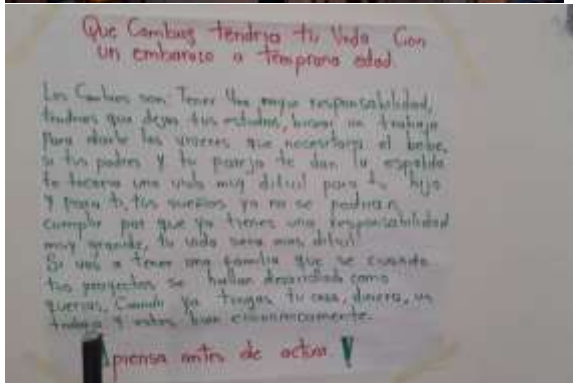 Que Cambios tendria tu Vida Con
un embarazo a temprana edad.
Los Cambios son: Tener una mayor responsabilidad,
tendrias que dejar tus estudios, buscar un trabajo
Para darle los viveres que necesitaria el bebe,
si tus padres y tu pareja te dan la espalda
te tocaria una vida muy dificil para tu hijo
y para ti, tus sueños ya no se podrian
cumplir por que ya tienes una responsabilidad
muy grande, tu vida sera mas dificil
Si vas a tener una familia que se cuando
tus proyectos se hallan desarrollado como
querias. Cuando ya tengas tu casa, dinero, un
trabajo y estes bien economicamente.
piensa antes de actuar